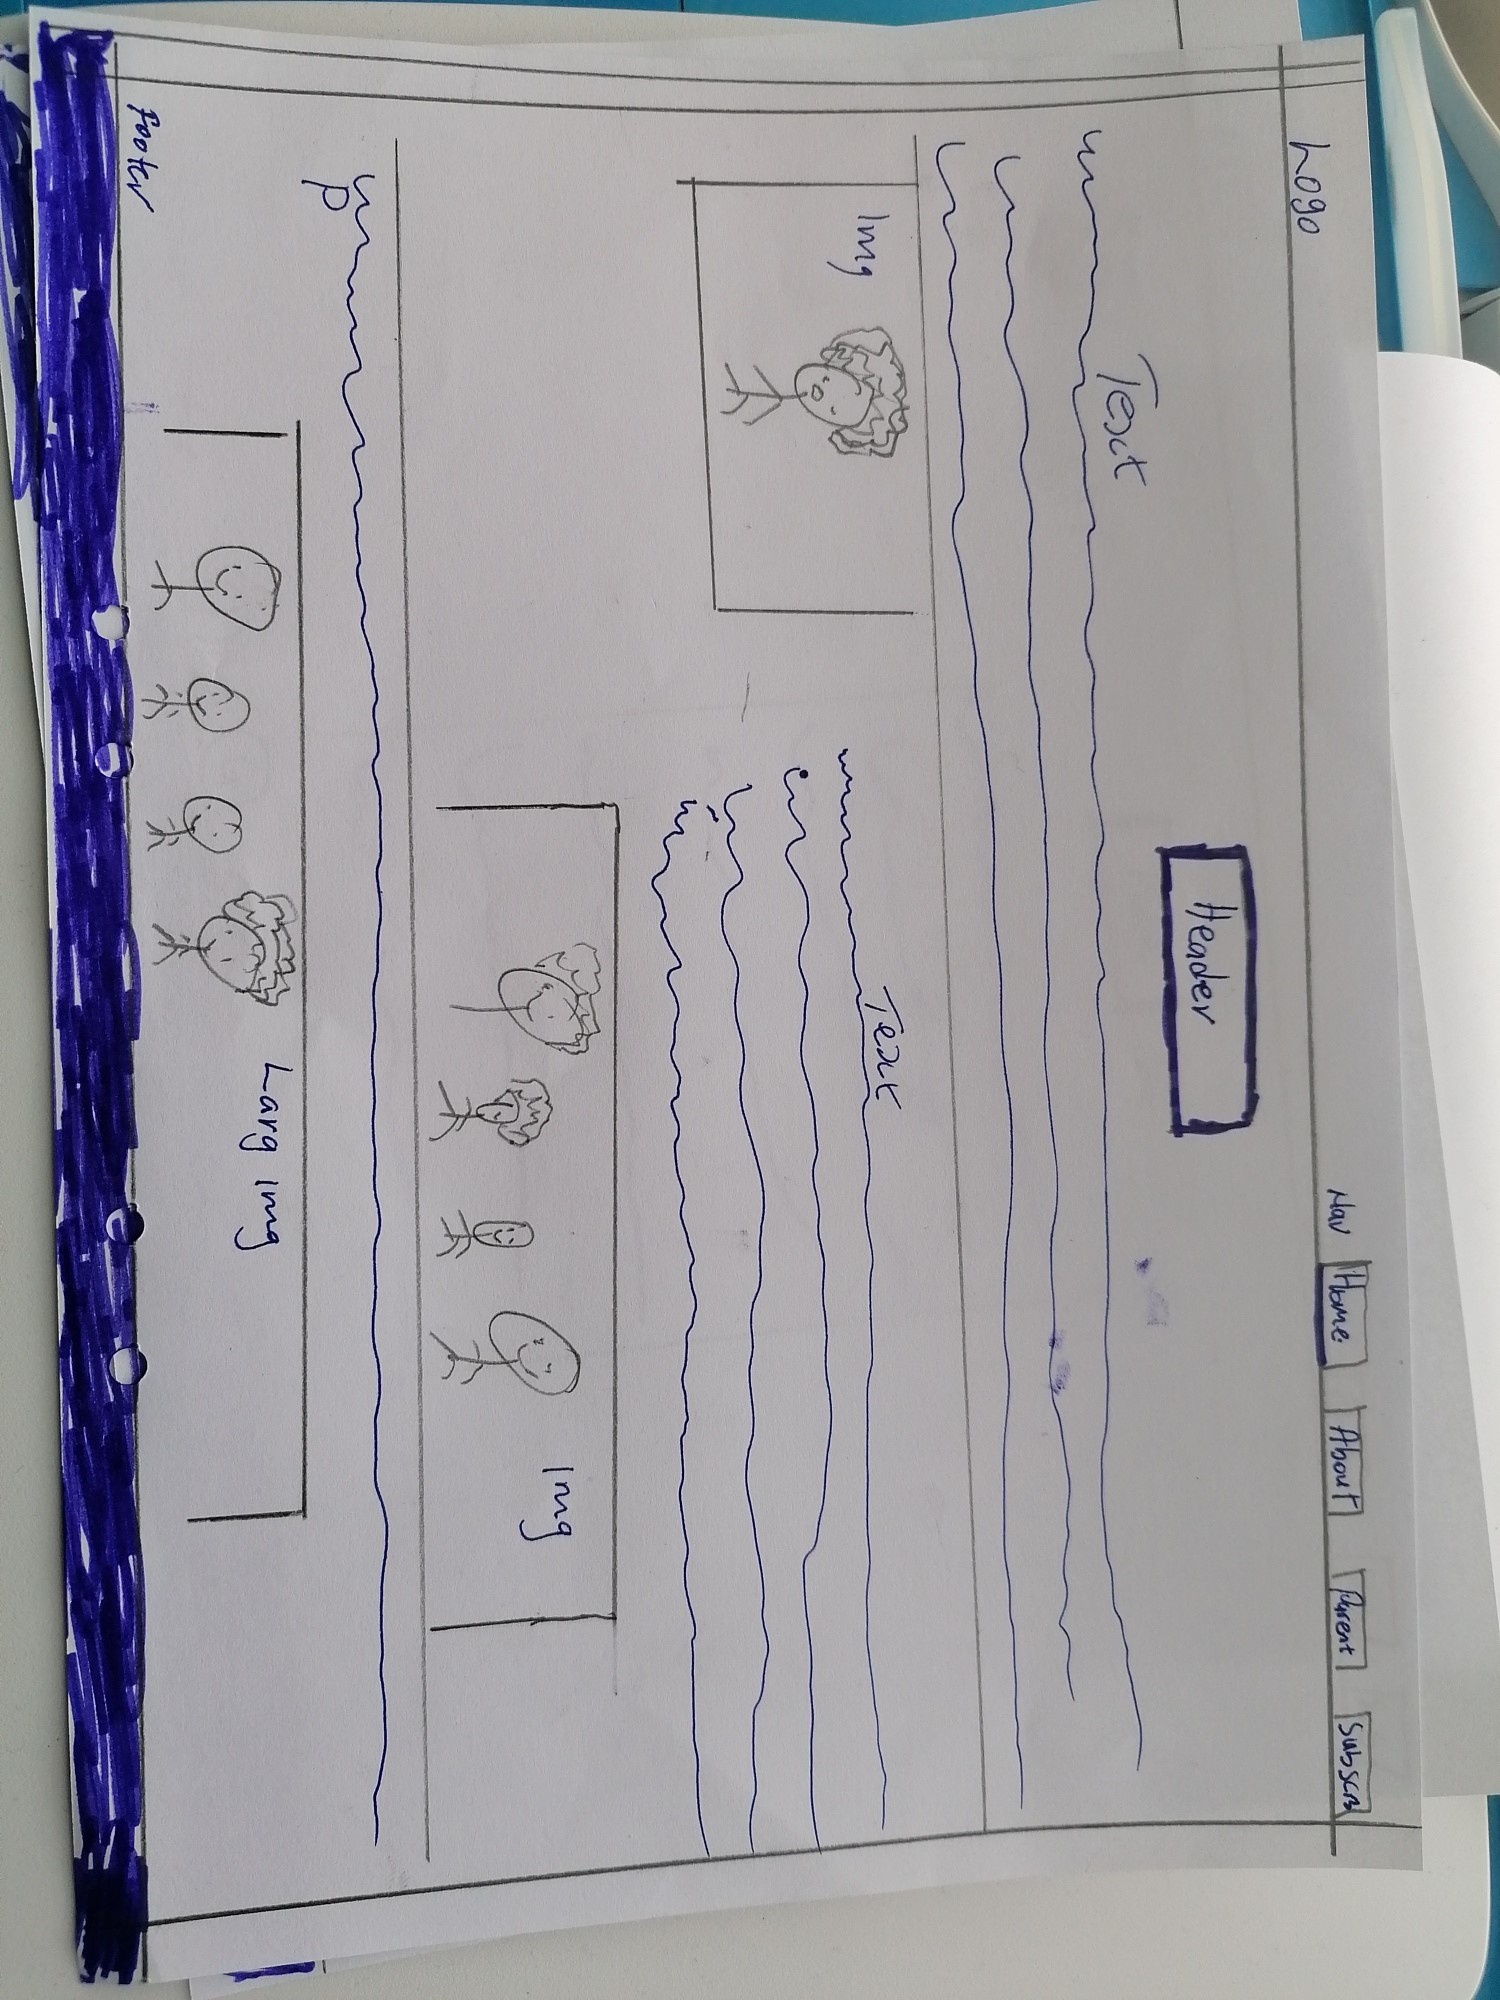 Logo
Nav Home About Parent Subscb
Header
Text
Img
Text
Img
P
Larg img
footer